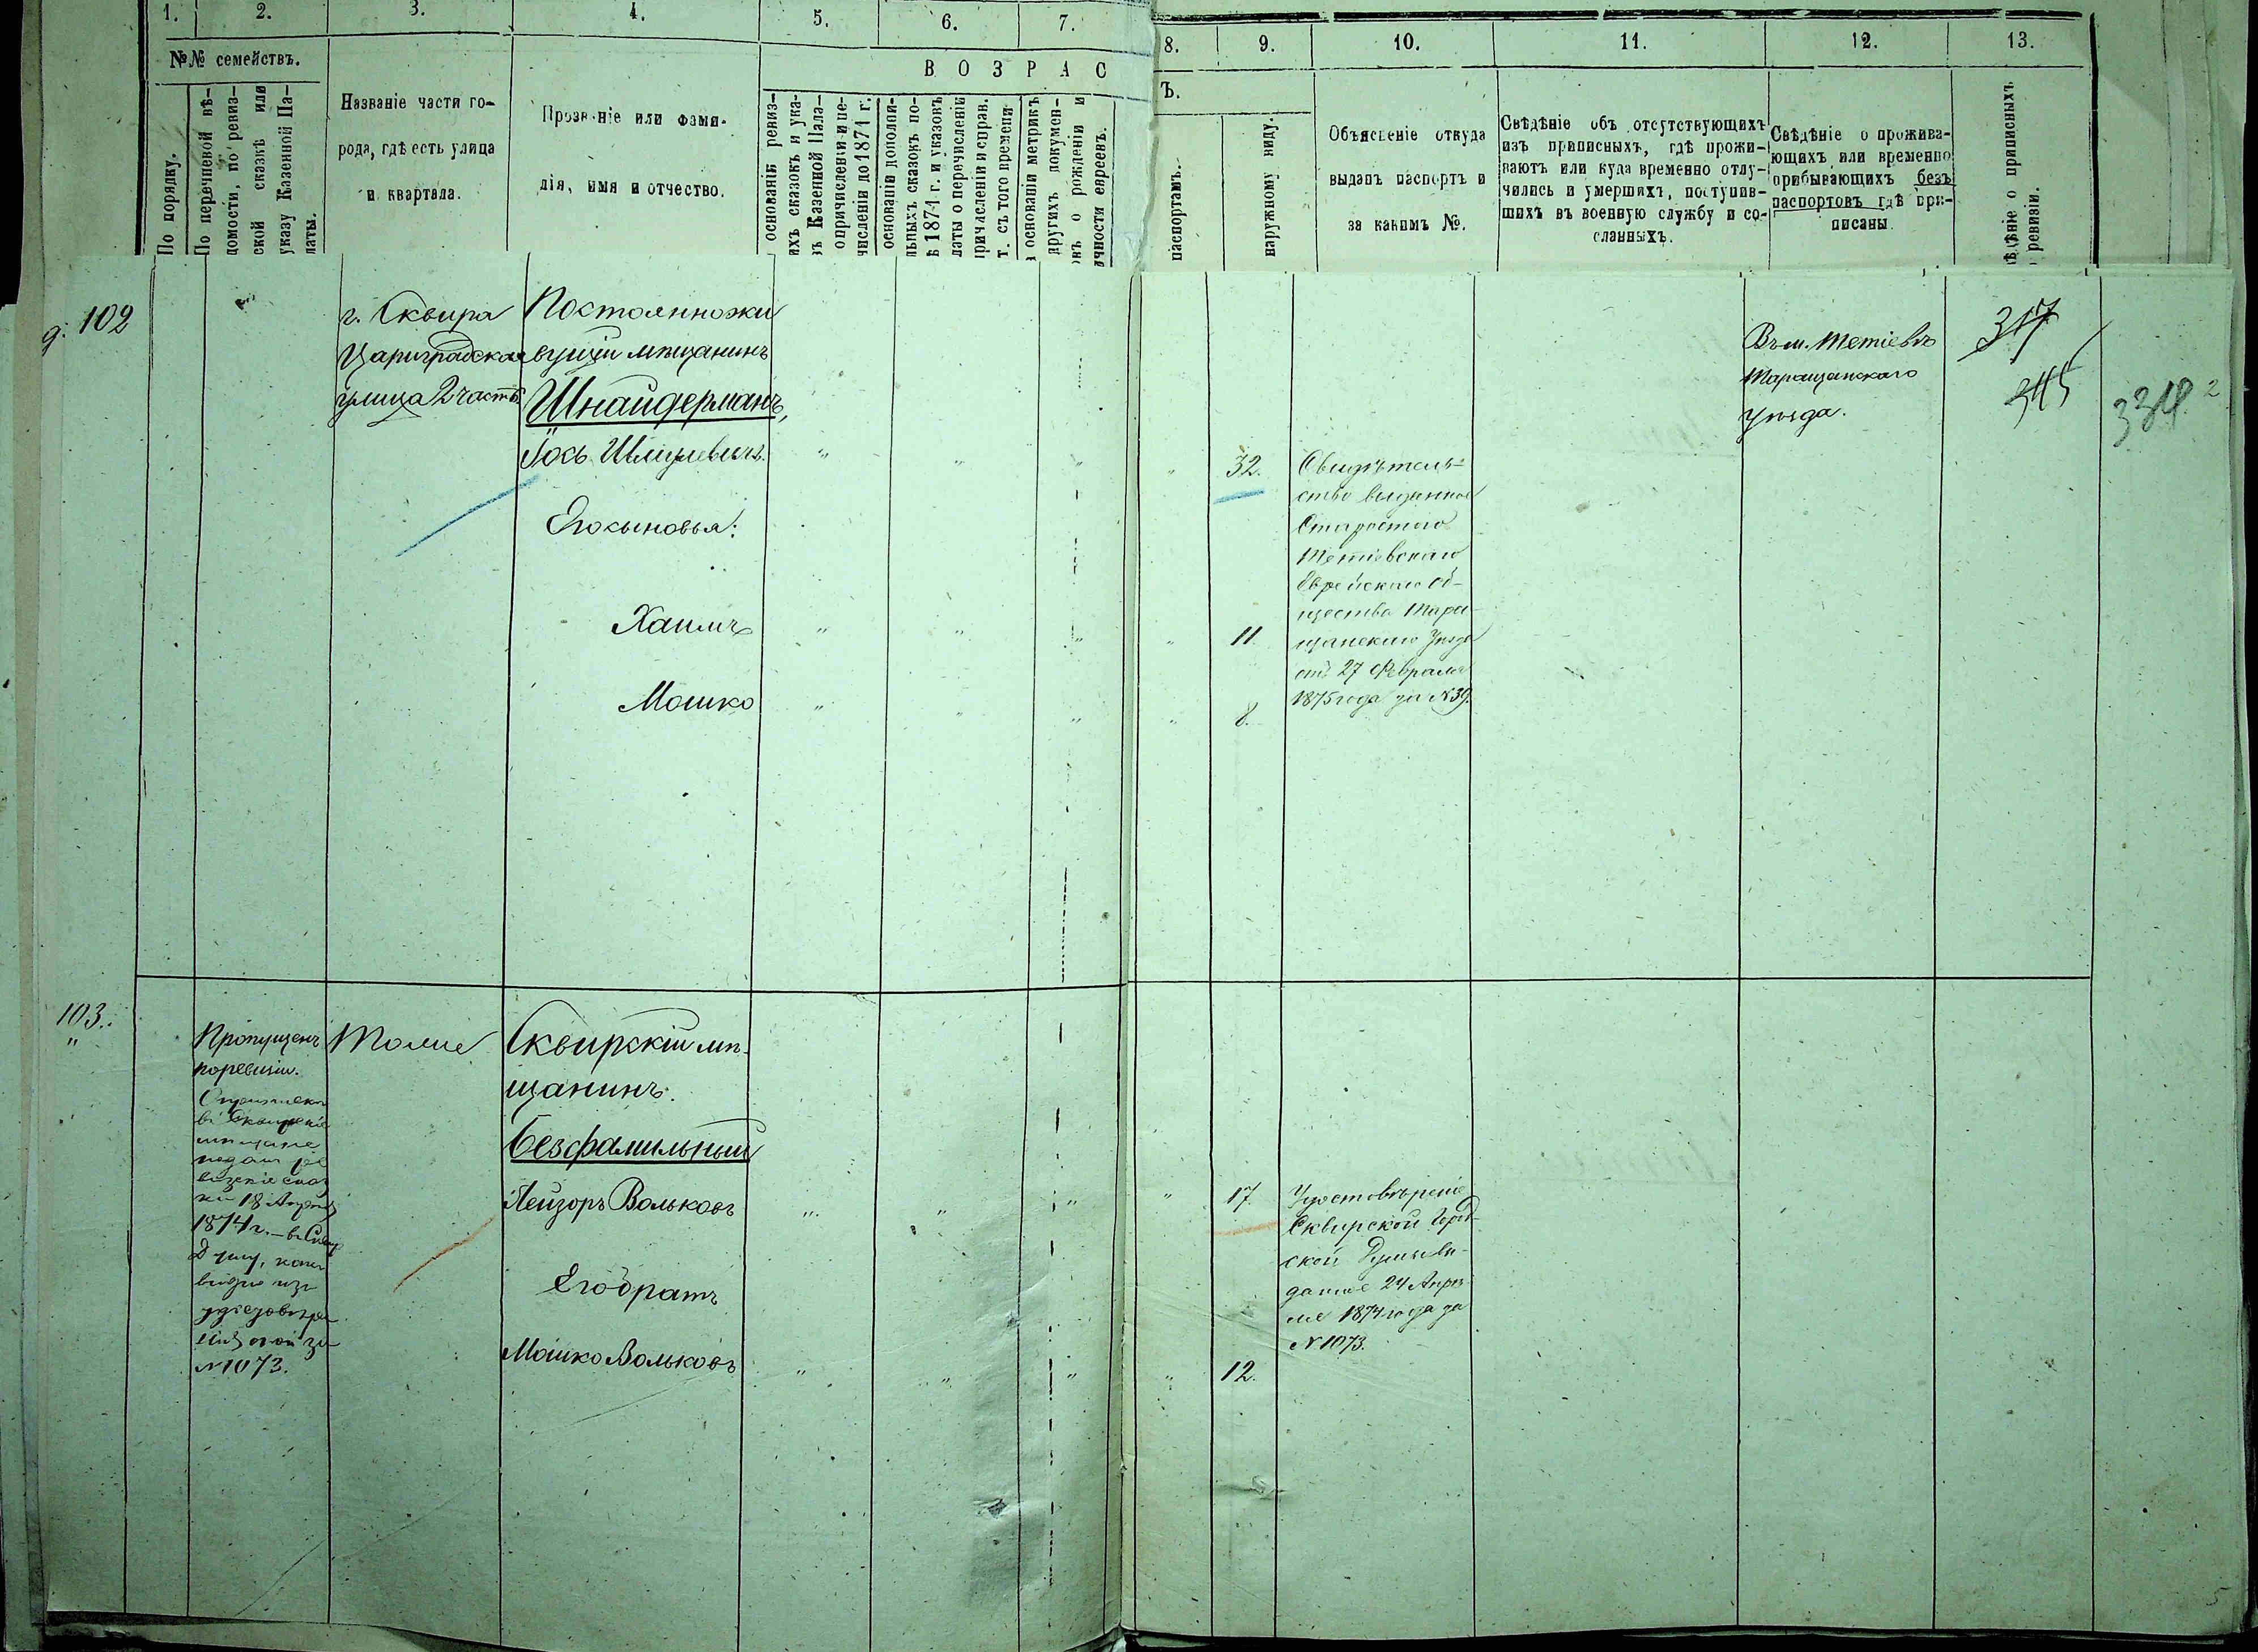 1. 2. 3. 4. 5. 6. 7. 8. 9. 10. 11. 12. 13.
№№ семействъ.
По порядку.
По перечневой вѣ-
домости, по ревиз-
ской сказкѣ или
указу Казенной Па-
латы.
Названіе части го-
рода, гдѣ есть улица
и квартала.
Прозваніе или фами-
лія, имя и отчество.
ВОЗРАС
Ъ.
основаніи ревиз-
ихъ сказокъ и ука-
въ Казенной Пала-
о причисленіи и пе-
численіи до 1871 г.
основаніи дополни-
льныхъ сказокъ по-
ѣ 1871 г. и указовъ
латы о перечисленіи
причисленіи и справ.
т. съ того времени
основаніи метрикъ
другихъ докумен-
овъ о рожденіи и
ичности евреевъ.
паспортамъ.
наружному виду.
Объясненіе откуда
выданъ паспортъ и
за какимъ №.
Свѣдѣніе объ отсутствующихъ
изъ приписныхъ, гдѣ прожи-
ваютъ или куда временно отлу-
чились и умершихъ, поступив-
шихъ въ военную службу и со-
сланныхъ.
Свѣдѣніе о прожива-
ющихъ или временно
прибывающихъ безъ
паспортовъ гдѣ при-
писаны.
ѣдѣніе о приписныхъ
ревизіи.
д. 102
г. Сквира
Цариградская
улица 2 часть
Постоянножи
вущій мѣщанинъ
Шнайдерманъ,
Іось Шмулевичъ.
Его сыновья:
Хаимъ
Мошко
32.
11.
8.
Свидѣтель-
ство выданное
Старостою
Тетіевскаго
Еврейскаго об-
щества Тара-
щанскаго уѣзда
отъ 27 Февраля
1875 года за №39.
Въ м. Тетіевѣ
Таращанскаго
уѣзда.
317
345
334 2
103.
Пропущенъ
по ревизіи.
1874 г.
№1073.
Тоже
Сквирскій мѣ-
щанинъ.
Безфамильный
Лейзоръ Вольковъ
Его братъ
Мошко Вольковъ
17.
12.
Удостовѣреніе
Сквирской Город-
ской Думы вы-
данное 24 Апрѣ-
ля 1874 года за
№1073.